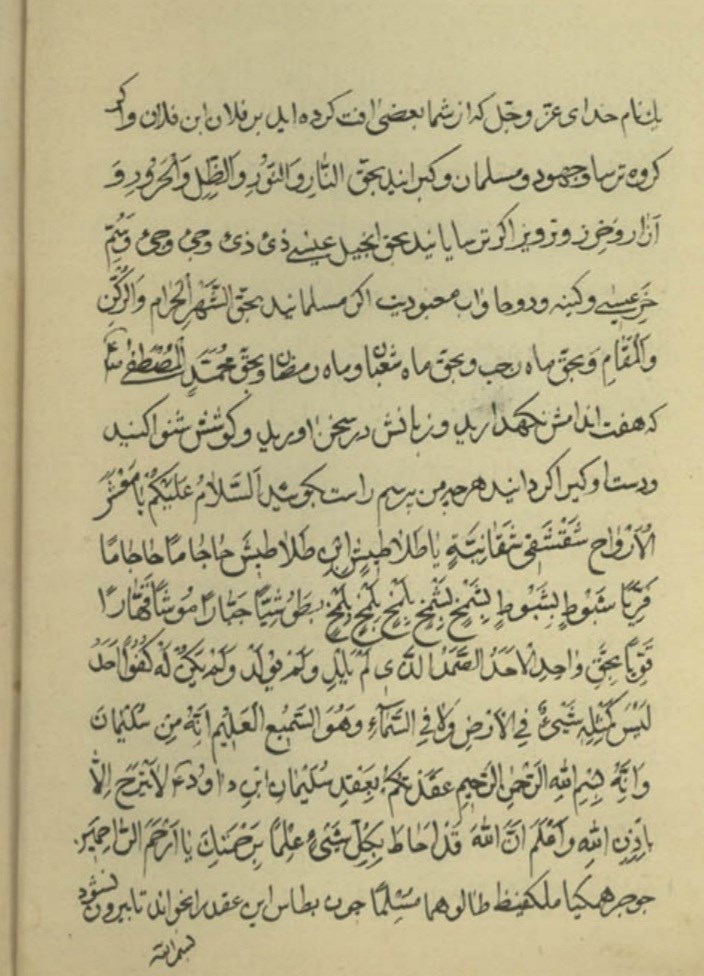 بنام خدای عزّ و جلّ که از شما بعضی افت کرده اید بر فلان ابن فلان واکر
کروه ترسا و جهود و مسلمان و کبرانید بحقّ النّار والنّور والظّل والحرور و
اگر ترسایانید بحق انجیل عیسی ذئ ذئ وحئ وحئ
خر عیسی وکینه ودوحا واب معبودیت اکر مسلمانید بحقّ الشّهر الحرام والرّکن
والمقام وبحقّ ماه رجب وبحق ماه شعبان وماه رمضان وبحق محمّد المصطفی
که هفت اندامش نکهدارید و زبانش در سخن اورید و کوشش شنوا کنید
ودست او کیرا کردانید هرچه من پرسم راست بکوئید السّلام علیکم یا معشر
الارواح یا طلاطیش ابن طلاطیش حاجاما حاجاما
شبوط بشبوط بشمخ بشمخ بلمخ بلمخ جبّارا قهّارا
قویّا بحقّ واحد الاحد الصّمد الّذی لم یلد ولم یولد ولم یکن له کفوا احد
لیس کمثله شیئ فی الارض ولا فی السّمآء وهو السّمیع العلیم انّه من سلیمان
وانّه بسم الله الرّحمن الرّحیم عقدتکم بعقد سلیمان ابن داود ع لا یبرح الّا
باذن الله واعلم انّ الله قد احاط بکلّ شئ علما برحمتک یا ارحم الرّاحمین
مسلما چون بطاس این عقد را بخواند تا بیرون نشود
بسم الله